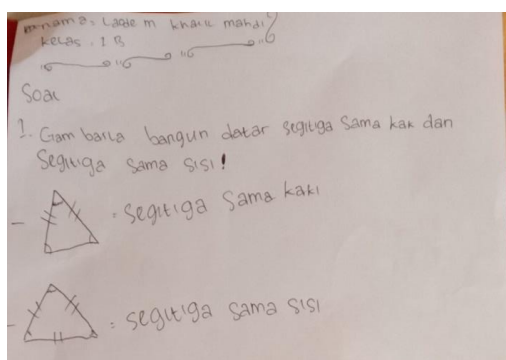 nama : Laode m khalil mahdi
kelas : 1 B
Soal
1. Gambarla bangun datar segitiga sama kaki dan
Segitiga sama sisi!
- : segitiga sama kaki
- : segitiga sama sisi